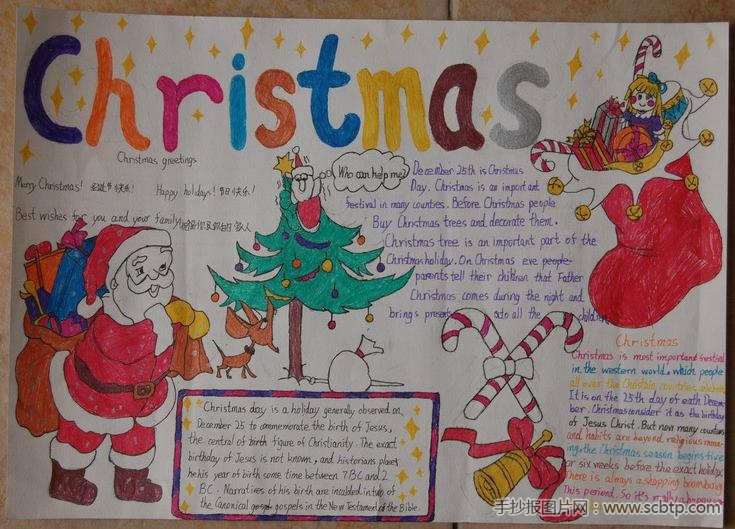 Christmas
Christmas greetings
Merry Christmas! 圣诞节快乐! Happy holidays! 节日快乐!
Best wishes for you and your family
Who can help me?
December 25th is Christmas
Day. Christmas is an important
festival in many counties. Before Christmas people
Buy Christmas trees and decorate them.
Christmas tree is an important part of the
Christmas holiday. On Christmas eve people
parents tell their children that Father
Christmas comes during the night and
brings presents to all the children
Christmas day is a holiday generally observed on
December 25 to commemorate the birth of Jesus,
the central of birth figure of Christianity. The exact
birthday of Jesus is not known, and historians places
his year of birth some time between 7 BC and 2
BC. Narratives of his birth are included in two of
the Canonical gospel gospels in the New Testament of the Bible.
Christmas
Christmas is most important festival
in the western world. which people
all over the Christain countries celebrate
It is on the 25th day of eath Decem-
ber. Christmas consider it as the birthday
of Jesus Christ. But now many countries
and habits are beyond religious mea-
ing, the Christmas season begins five
or six weeks before the exact holiday
There is always a shopping boom during
This periond. So it's really a happy
手抄报图片网:www.scbtp.com